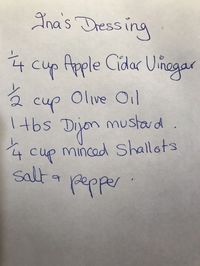 Ina's Dressing
1/4 cup Apple Cidar Vinegar
1/2 cup Olive Oil
1 tbs Dijon mustard.
1/4 cup minced Shallots
Salt & pepper.